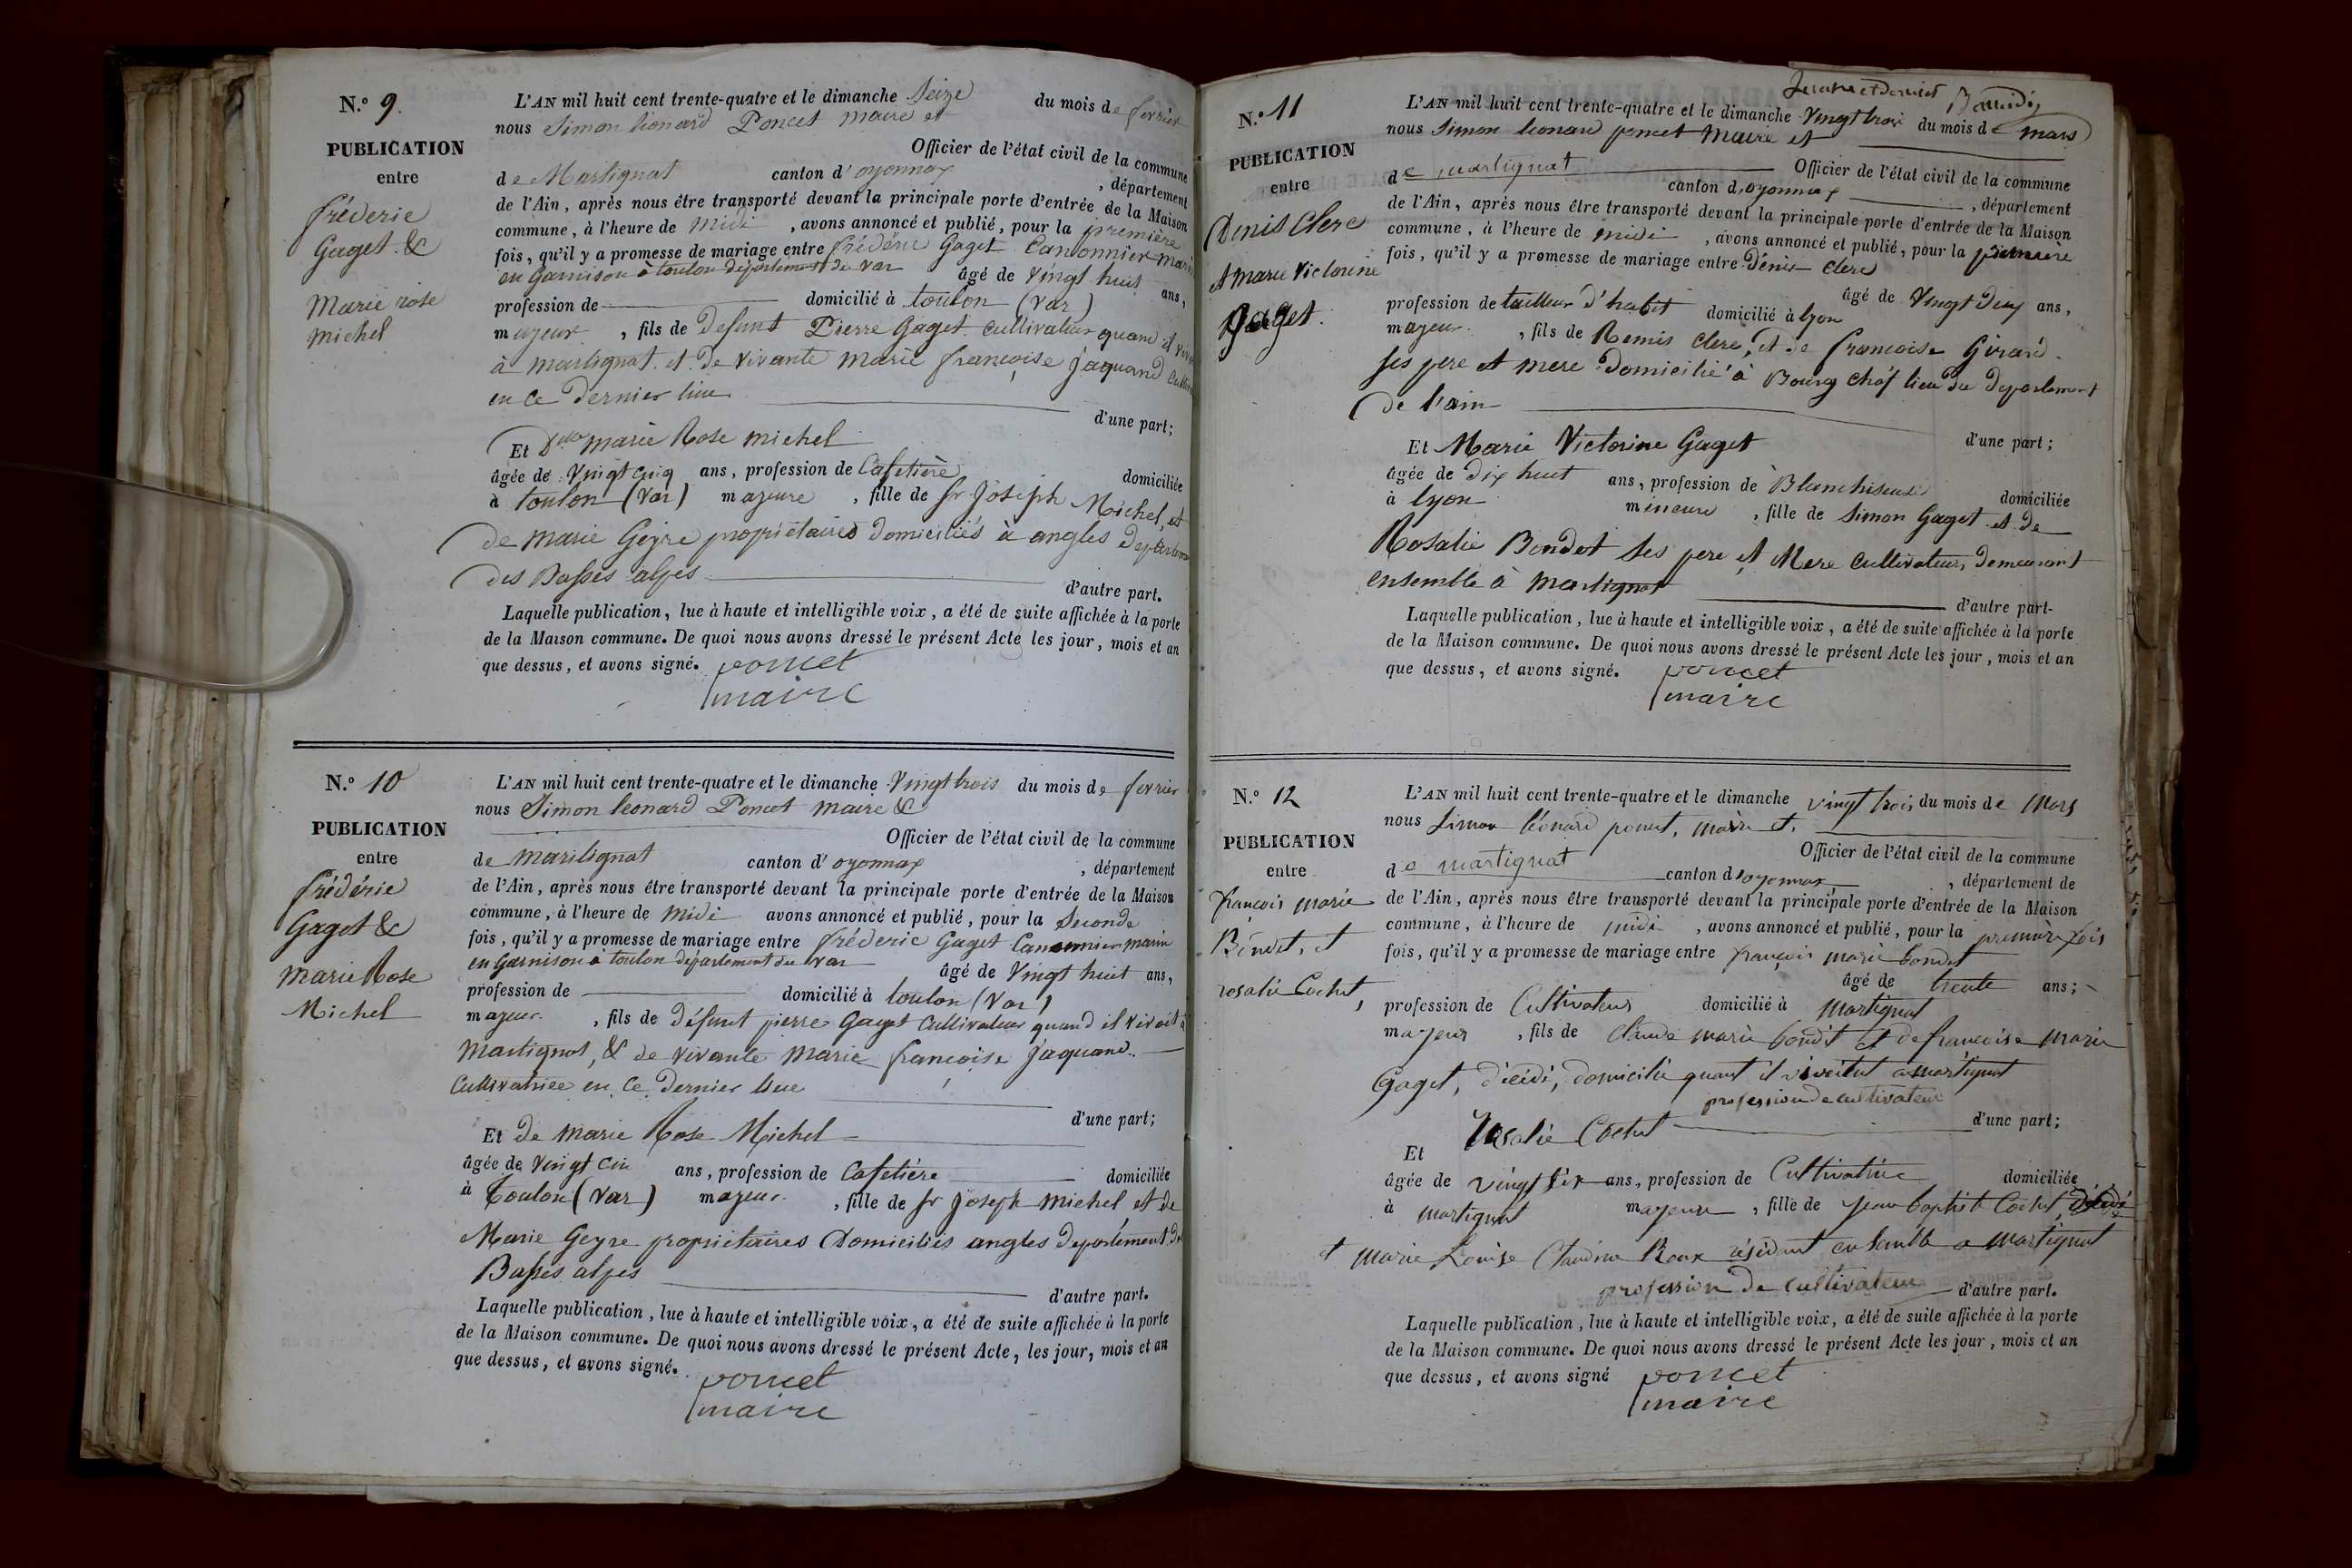 N.º 9.
PUBLICATION
entre
fréderic
Gaget &
Marie rose
michel
L'AN mil huit cent trente-quatre et le dimanche Seize du mois de fevrier
nous Simon léonard Poncet maire et
Officier de l'état civil de la commune
de Martignat canton d'oyonnax , département
de l'Ain, après nous être transporté devant la principale porte d'entrée de la Maison
commune, à l'heure de Midi , avons annoncé et publié, pour la première
fois, qu'il y a promesse de mariage entre frédéric Gaget Canonnier marin
en Garnison à toulon département du var âgé de vingt huit ans,
profession de domicilié à toulon (var)
majeur , fils de Defunt Pierre Gaget cultivateur quand il vivait
à martignat et de vivante marie françoise jaquand
en ce dernier lieu
d'une part;
Et Dlle marie Rose michel
âgée de vingt cinq ans, profession de Cafetière domiciliée
à toulon (var) majeure , fille de sr joseph Michel, et
de marie Geyre propriétaires domiciliés à angles departement
des Basses alpes
d'autre part.
Laquelle publication, lue à haute et intelligible voix, a été de suite affichée à la porte
de la Maison commune. De quoi nous avons dressé le présent Acte les jour, mois et an
que dessus, et avons signé. poncet
maire
N.º 10
PUBLICATION
entre
frédéric
Gaget &
Marie Rose
Michel
L'AN mil huit cent trente-quatre et le dimanche Vingt trois du mois de fevrier
nous Simon leonard Poncet maire &
Officier de l'état civil de la commune
de martignat canton d'oyonnax , département
de l'Ain, après nous être transporté devant la principale porte d'entrée de la Maison
commune, à l'heure de midi avons annoncé et publié, pour la Seconde
fois, qu'il y a promesse de mariage entre fréderic Gaget Canonnier marin
en Garnison à toulon département du var âgé de Vingt huit ans,
profession de domicilié à toulon (var)
majeur , fils de défunt pierre Gaget Cultivateur quand il vivoit à
Martignat, & de vivante marie francoise jaquand
Cultivatrice en ce dernier lieu
d'une part;
Et de marie Rose Michel
âgée de vingt cin ans, profession de Cafetière domiciliée
à Toulon (var) majeur , fille de sr joseph michel et de
Marie Geyre propriétaires Domiciliés angles département des
Basses alpes
d'autre part.
Laquelle publication, lue à haute et intelligible voix, a été de suite affichée à la porte
de la Maison commune. De quoi nous avons dressé le présent Acte, les jour, mois et an
que dessus, et avons signé. poncet
maire
N.º 11
PUBLICATION
entre
Denis Clerc
et marie victorine
gaget
L'AN mil huit cent trente-quatre et le dimanche Vingt trois du mois de mars
nous Simon leonard poncet maire et
Officier de l'état civil de la commune
de martignat canton d'oyonnax , département
de l'Ain, après nous être transporté devant la principale porte d'entrée de la Maison
commune, à l'heure de midi , avons annoncé et publié, pour la première
fois, qu'il y a promesse de mariage entre Dénis Clerc
âgé de Vingt deux ans,
profession de tailleur d'habit domicilié à lyon
majeur , fils de Remis clerc, et de francoise Girard
ses pere et mere domicilié à Bourg chéf lieu du departement
de l'ain
d'une part;
Et Marie Victorine Gaget
âgée de dix huit ans, profession de Blanchiseuse domiciliée
à lyon mineure , fille de simon Gaget et de
Rosalie Bondet ses pere et Mere cultivateurs demeurant
ensemble à martignat
d'autre part.
Laquelle publication, lue à haute et intelligible voix, a été de suite affichée à la porte
de la Maison commune. De quoi nous avons dressé le présent Acte les jour, mois et an
que dessus, et avons signé. poncet
maire
N.º 12
PUBLICATION
entre
françois marie
Bondet, et
rosalie Cochet,
L'AN mil huit cent trente-quatre et le dimanche vingt trois du mois de Mars
nous Simon léonard poncet, maire et,
Officier de l'état civil de la commune
de martignat canton d'oyonnax , département de
de l'Ain, après nous être transporté devant la principale porte d'entrée de la Maison
commune, à l'heure de midi , avons annoncé et publié, pour la premiere fois
fois, qu'il y a promesse de mariage entre françois marie bondet
âgé de trente ans;
profession de Cultivateur domicilié à Martignat
majeur , fils de Claude marie bondet et de francoise marie
Gaget, décédé, domicilié quant il vivoitent a martignat
profession de cultivateur
d'une part;
Et Rosalie Cochet
âgée de vingt six ans, profession de Cultivatrice domiciliée
à martignat majeure , fille de jean baptiste Cochet
et marie Louise Claudine Roux résidant ensemble a Martignat
profession de cultivateur d'autre part.
Laquelle publication, lue à haute et intelligible voix, a été de suite affichée à la porte
de la Maison commune. De quoi nous avons dressé le présent Acte les jour, mois et an
que dessus, et avons signé poncet
maire